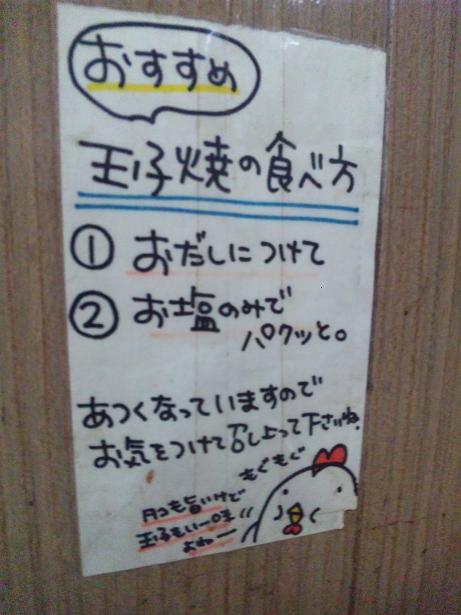 おすすめ
玉子焼の食べ方
① おだしにつけて
② お塩のみで
パクッと。
あつくなっていますので
お気をつけて召し上って下さいね。
もぐもぐ
タコも旨いけど
玉子もいー味
よねー